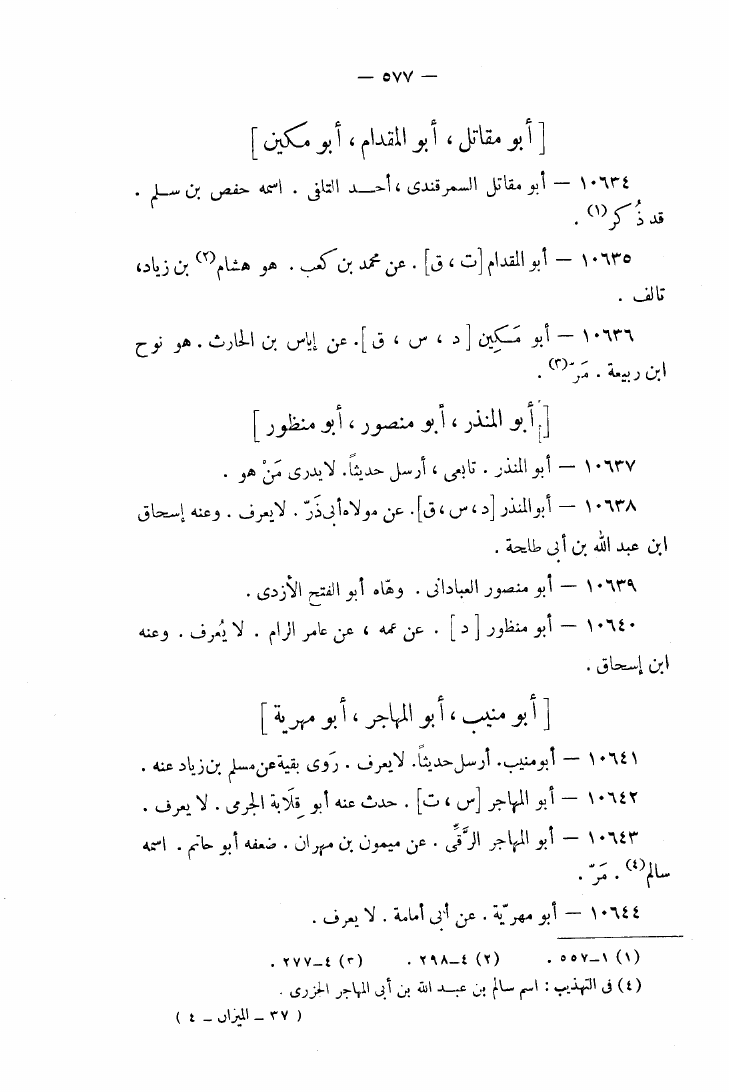 — ٥٧٧ —
[ أبو مقاتل ، أبو المقدام ، أبو مكين ]
١٠٦٣٤ — أبو مقاتل السمرقندى ، أحد التلفى . اسمه حفص بن سلم .
قد ذُكر (١) .
١٠٦٣٥ — أبو المقدام [ت ، ق] . عن محمد بن كعب . هو هشام (٢) بن زياد،
تالف .
١٠٦٣٦ — أبو مَكِين [ د ، س ، ق ]. عن إياس بن الحارث . هو نوح
ابن ربيعة . مَرّ (٣) .
[ أبو المنذر ، أبو منصور ، أبو منظور ]
١٠٦٣٧ — أبو المنذر . تابعى ، أرسل حديثاً. لا يدرى مَنْ هو .
١٠٦٣٨ — أبو المنذر [د ، س ، ق]. عن مولاه أبى ذَرّ . لا يعرف . وعنه إسحاق
ابن عبد الله بن أبى طلحة .
١٠٦٣٩ — أبو منصور العبادانى . وهّاه أبو الفتح الأزدى .
١٠٦٤٠ — أبو منظور [ د ] . عن عمه ، عن عامر الرام . لا يُعرف . وعنه
ابن إسحاق .
[ أبو منيب ، أبو المهاجر ، أبو مهرية ]
١٠٦٤١ — أبو منيب. أرسل حديثاً. لا يعرف . رَوى بقية عن مسلم بن زياد عنه .
١٠٦٤٢ — أبو المهاجر [س ، ت] . حدث عنه أبو قِلَابة الجرمى . لا يعرف .
١٠٦٤٣ — أبو المهاجر الرَّقِّى . عن ميمون بن مهران . ضعفه أبو حاتم . اسمه
سالم (٤) . مَرّ .
١٠٦٤٤ — أبو مهريّة . عن أبى أمامة . لا يعرف .
(١) ١–٥٥٧ . (٢) ٤–٢٩٨ . (٣) ٤–٢٧٧ .
(٤) فى التهذيب : اسم سالم بن عبد الله بن أبى المهاجر الخزرى .
( ٣٧ – الميزان – ٤ )